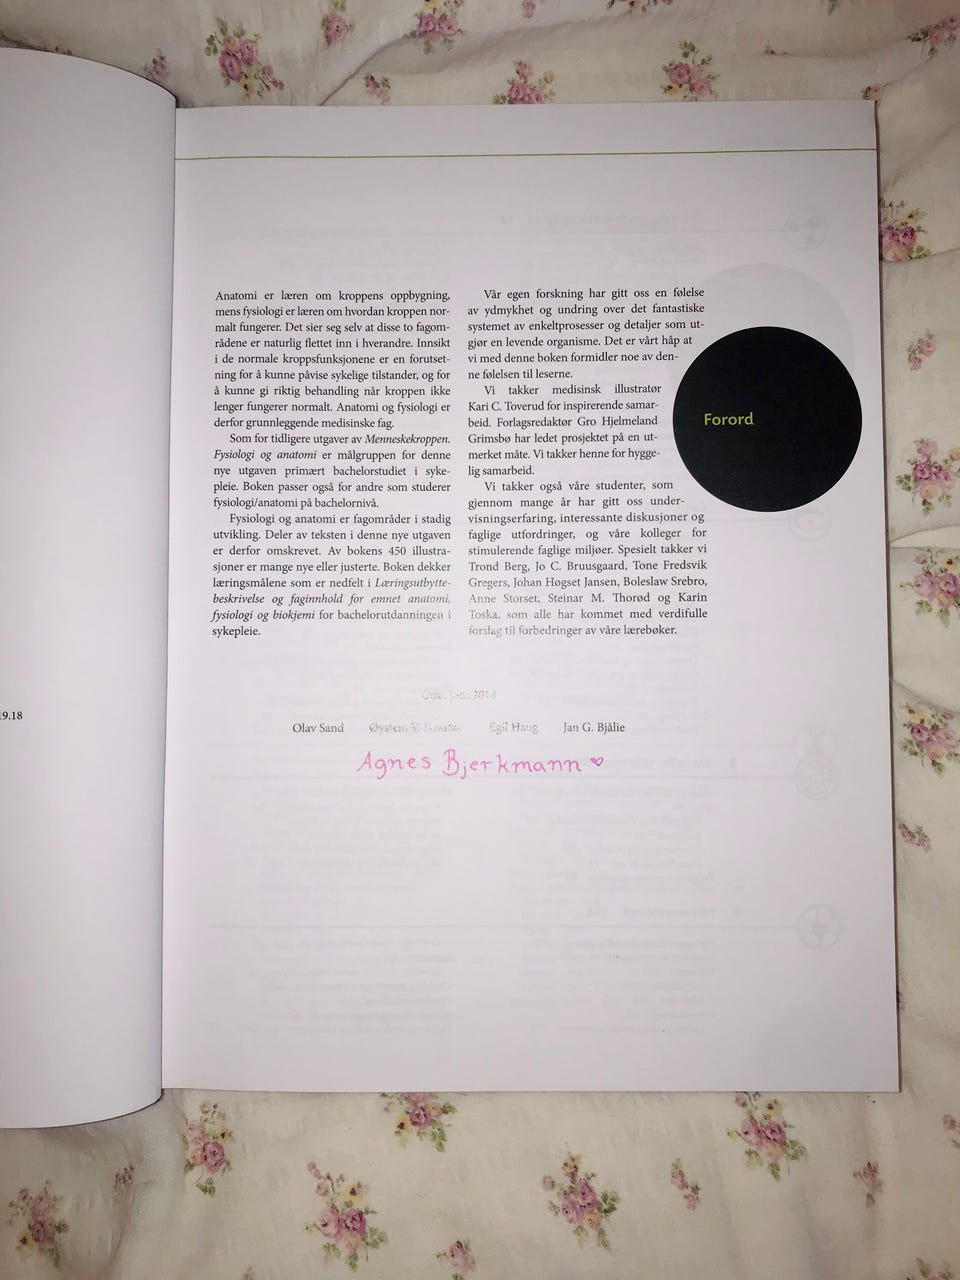 Anatomi er læren om kroppens oppbygning,
mens fysiologi er læren om hvordan kroppen nor-
malt fungerer. Det sier seg selv at disse to fagom-
rådene er naturlig flettet inn i hverandre. Innsikt
i de normale kroppsfunksjonene er en forutset-
ning for å kunne påvise sykelige tilstander, og for
å kunne gi riktig behandling når kroppen ikke
lenger fungerer normalt. Anatomi og fysiologi er
derfor grunnleggende medisinske fag.
Som for tidligere utgaver av Menneskekroppen.
Fysiologi og anatomi er målgruppen for denne
nye utgaven primært bachelorstudiet i syke-
pleie. Boken passer også for andre som studerer
fysiologi/anatomi på bachelornivå.
Fysiologi og anatomi er fagområder i stadig
utvikling. Deler av teksten i denne nye utgaven
er derfor omskrevet. Av bokens 450 illustra-
sjoner er mange nye eller justerte. Boken dekker
læringsmålene som er nedfelt i Læringsutbytte-
beskrivelse og faginnhold for emnet anatomi,
fysiologi og biokjemi for bachelorutdanningen i
sykepleie.
Vår egen forskning har gitt oss en følelse
av ydmykhet og undring over det fantastiske
systemet av enkeltprosesser og detaljer som ut-
gjør en levende organisme. Det er vårt håp at
vi med denne boken formidler noe av den-
ne følelsen til leserne.
Vi takker medisinsk illustratør
Kari C. Toverud for inspirerende samar-
beid. Forlagsredaktør Gro Hjelmeland
Grimsbø har ledet prosjektet på en ut-
merket måte. Vi takker henne for hygge-
lig samarbeid.
Vi takker også våre studenter, som
gjennom mange år har gitt oss under-
visningserfaring, interessante diskusjoner og
faglige utfordringer, og våre kolleger for
stimulerende faglige miljøer. Spesielt takker vi
Trond Berg, Jo C. Bruusgaard, Tone Fredsvik
Gregers, Johan Høgset Jansen, Boleslaw Srebro,
Anne Storset, Steinar M. Thorød og Karin
Toska, som alle har kommet med verdifulle
forslag til forbedringer av våre lærebøker.
Forord
19.18
2018
Olav Sand Øystein Egil Haug Jan G. Bjålie
Agnes Bjerkmann